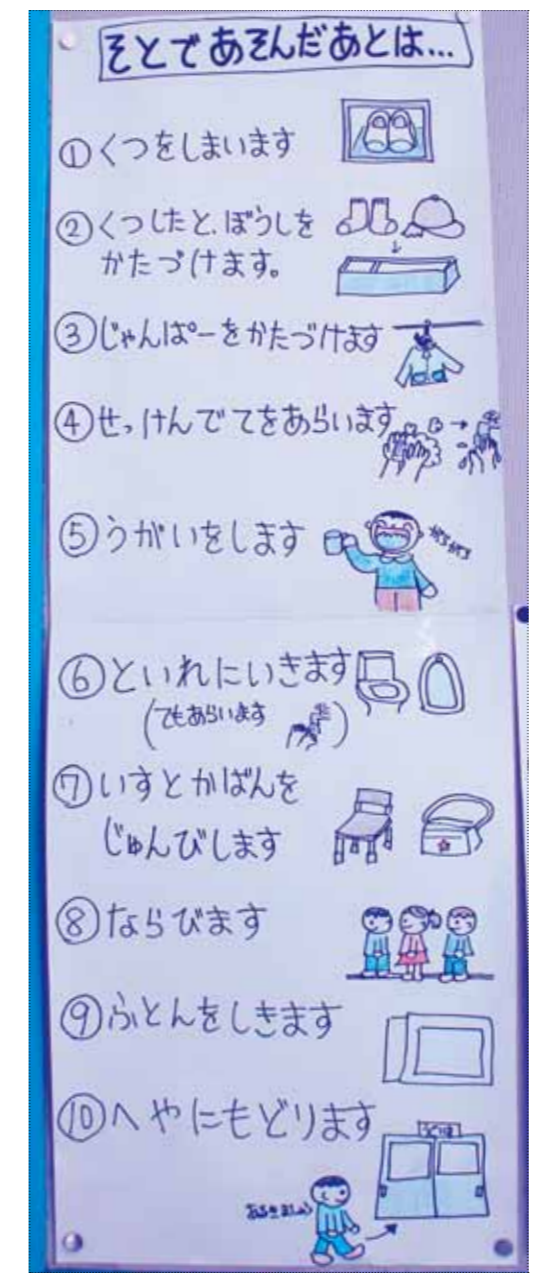 そとであそんだあとは…
①くつをしまいます
②くつしたと、ぼうしを
かたづけます。
③じゃんぱーをかたづけます
④せっけんでてをあらいます
⑤うがいをします
がらがら
⑥といれにいきます
(てもあらいます)
⑦いすとかばんを
じゅんびします
⑧ならびます
⑨ふとんをしきます
⑩へやにもどります
あるきましょう